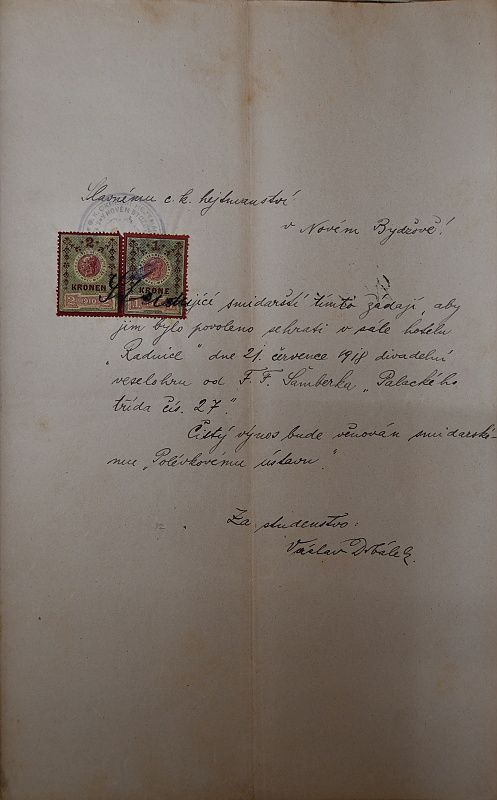 Slavnému c. k. hejtmanství
v Novém Bydžově!
2 1
KRONEN KRONE
2 1910 1
Studující smidarští tímto žádají, aby
jim bylo povoleno, sehrati v sále hotelu
„Radnice" dne 21. července 1918 divadelní
veselohru od F. F. Šamberka „Palackého
třída čís. 27".
Čistý výnos bude věnován smidarské-
mu „Polévkovemu ústavu".
Za studenstvo:
Václav Drbálek